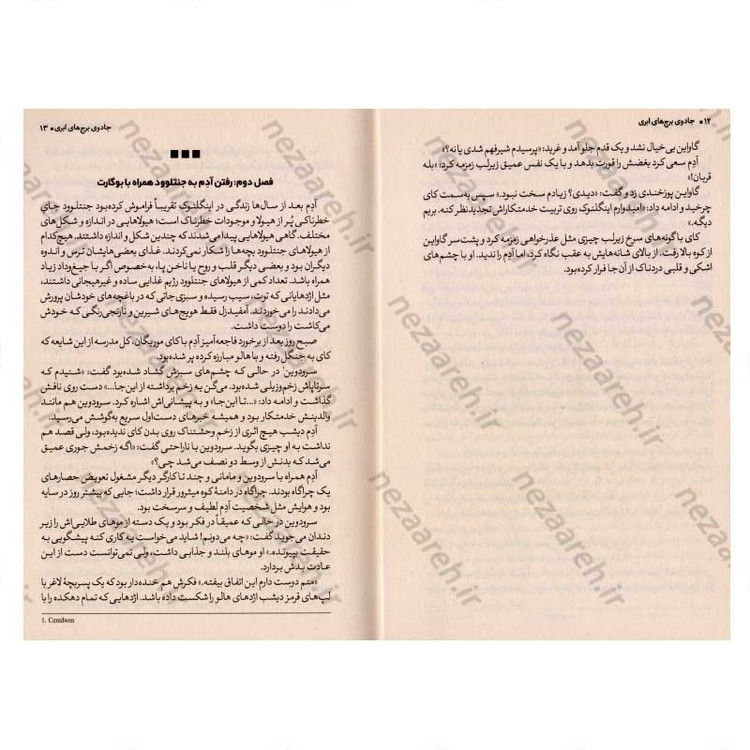 ۱۲ • جادوی برج‌های ابری
گاواین بی‌خیال نشد و یک قدم جلو آمد و غرید: «پرسیدم شیرفهم شدی یا نه؟»
آدِم سعی کرد بغضش را قورت بدهد و با یک نفس عمیق زیرلب زمزمه کرد: «بله
قربان!»
گاواین پوزخندی زد و گفت: «دیدی؟ زیادم سخت نبود.» سپس به‌سمت کای
چرخید و ادامه داد: «امیدوارم اینگلنوک روی تربیت خدمتکاراش تجدیدنظر کنه. بریم
دیگه.»
کای با گونه‌های سرخ زیرلب چیزی مثل عذرخواهی زمزمه کرد و پشت‌سر گاواین
از کوه بالا رفت. از بالای شانه‌هایش به عقب نگاه کرد، اما آدِم را ندید. او با چشم‌های
اشکی و قلبی دردناک از آن‌جا فرار کرده‌بود.
جادوی برج‌های ابری • ۱۳
فصل دوم: رفتن آدِم به جنتلوود همراه با بوگارت
آدِم بعد از سال‌ها زندگی در اینگلنوک تقریباً فراموش کرده‌بود جنتلوود جای
خطرناکی پُر از هیولا و موجودات خطرناک است؛ هیولاهایی در اندازه و شکل‌های
مختلف. گاهی هیولاهایی پیدا می‌شدند که چندین شکل و اندازه داشتند. هیچ‌کدام
از هیولاهای جنتلوود بچه‌ها را شکار نمی‌کردند. غذای بعضی‌هایشان ترس و اندوه
دیگران بود و بعضی دیگر قلب و روح یا ناخن پا، به‌خصوص اگر با جیغ‌وداد زیاد
همراه باشد. تعداد کمی از هیولاهای جنتلوود رژیم غذایی ساده و غیرهیجانی داشتند،
مثل اژدهایانی که توت، سیب رسیده و سبزی‌جاتی که در باغچه‌های خودشان پرورش
می‌دادند را می‌خوردند. آمفیدزل فقط هویج‌های شیرین و نارنجی‌رنگی که خودش
می‌کاشت را دوست داشت.
صبح روز بعد از برخورد فاجعه‌آمیز آدِم با کای موریگان، کل مدرسه از این شایعه که
کای به جنگل رفته و با هالو مبارزه کرده پر شده‌بود.
سرودوین¹ در حالی که چشم‌های سبزش گشاد شده‌بود گفت: «شنیدم که
سرتاپاش زخم‌وزیلی شده‌بود. می‌گن یه زخم برداشته از این‌جا...» دست روی نافش
گذاشت و ادامه داد: «...تا این‌جا» و به پیشانی‌اش اشاره کرد. سرودوین هم مانند
والدینش خدمتکار بود و همیشه خبرهای دست‌اول سریع به‌گوشش می‌رسید.
آدِم دیشب هیچ اثری از زخم وحشتناک روی بدن کای ندیده‌بود، ولی قصد هم
نداشت به او چیزی بگوید. سرودوین با ناراحتی گفت: «اگه زخمش جوری عمیق
می‌شد که بدنش از وسط دو نصف می‌شد چی؟»
آدِم همراه با سرودوین و مامانی و چند تا کارگر دیگر مشغول تعویض حصارهای
یک چراگاه بودند. چراگاه در دامنهٔ کوه میثرور قرار داشت؛ جایی که بیشتر روز در سایه
بود و هوایش مثل شخصیت آدِم لطیف و سرسخت بود.
سرودوین در حالی که عمیقاً در فکر بود و یک دسته از موهای طلایی‌اش را زیر
دندان می‌جوید گفت: «چه می‌دونم! شاید می‌خواست یه کاری کنه پیشگویی به
حقیقت بپیونده.» او موهای بلند و جذابی داشت، ولی نمی‌توانست دست از این
عادت بدش بردارد.
«منم دوست دارم این اتفاق بیفته.» فکرش هم خنده‌دار بود که یک پسربچهٔ لاغر با
لپ‌های قرمز دیشب اژدهای هالو را شکست داده باشد. اژدهایی که تمام دهکده را با
1. Ceredwen
nezaareh.ir